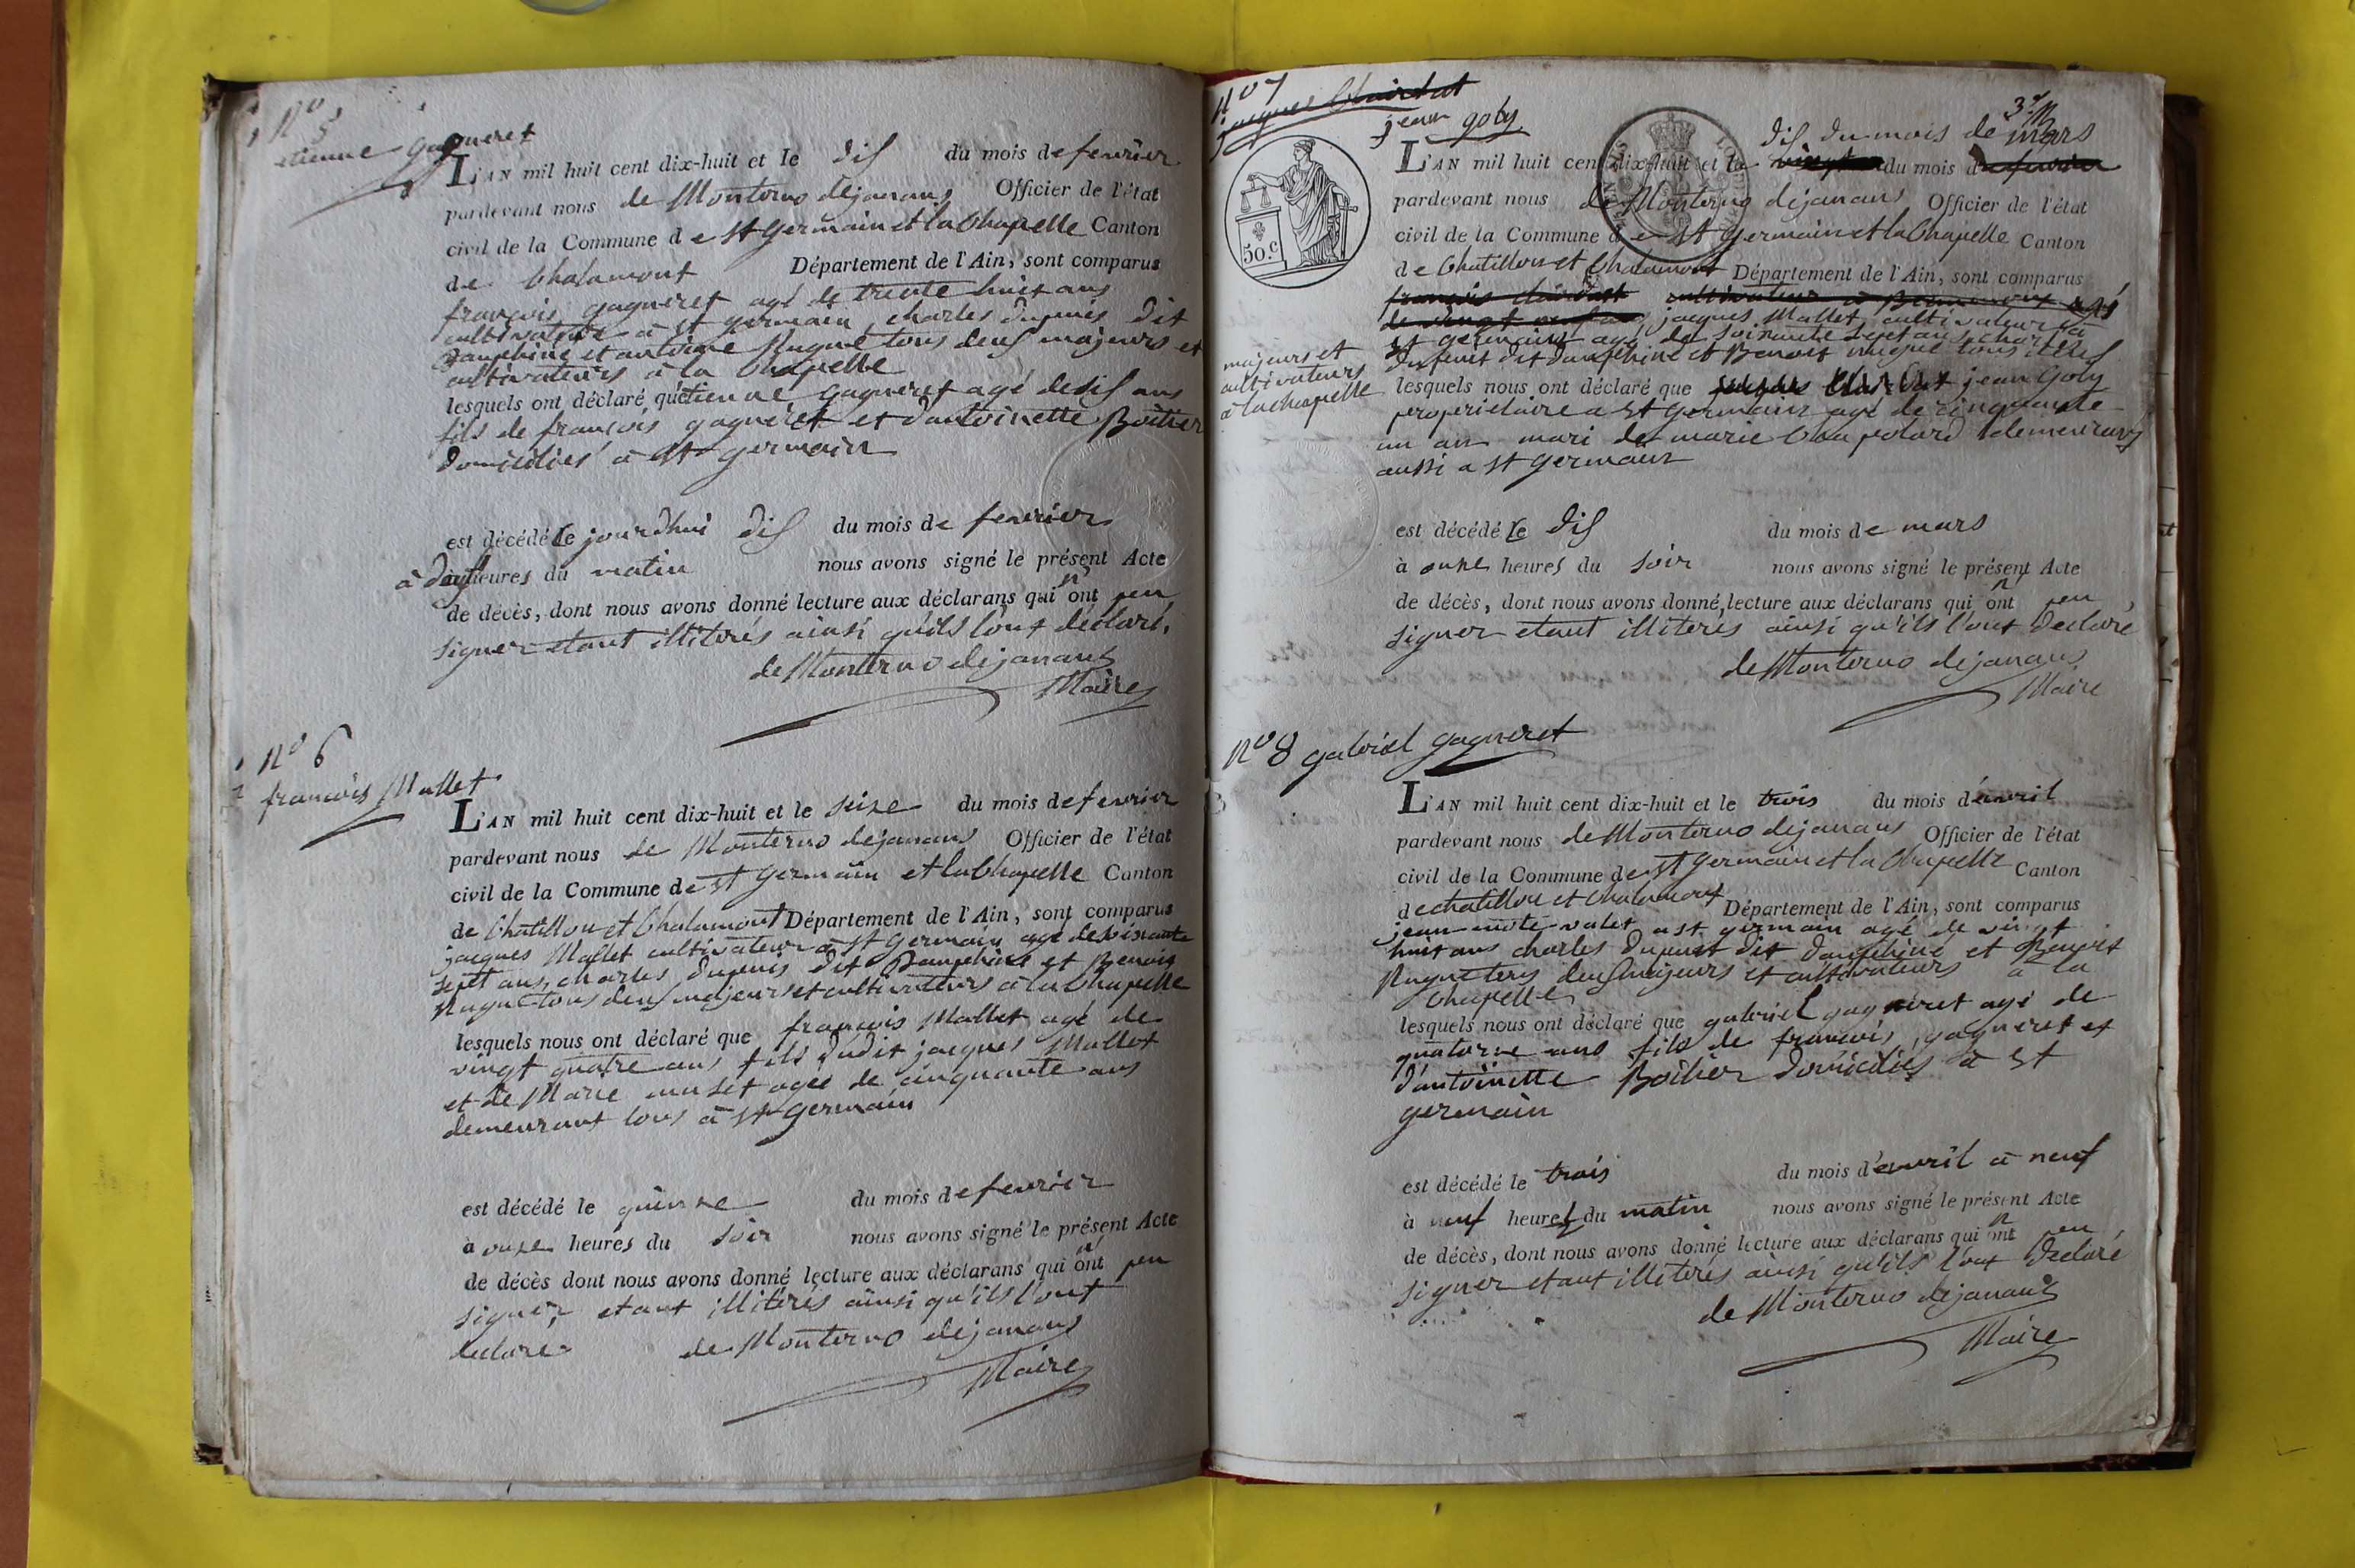 N° 5
etienne gagneret
L'AN mil huit cent dix-huit et le dis du mois de fevrier
pardevant nous de Monterno dejanans Officier de l'état
civil de la Commune de st germain et la Chapelle Canton
de Chalamont Département de l'Ain, sont comparus
françois gagneret agé de trente huit ans
cultivateur à st germain charles dupuis dit
Dauphiné et antoine Nugue tous deus majeurs et
cultivateurs à la Chapelle
lesquels ont déclaré qu'etienne gagneret agé de dis ans
fils de françois gagneret et d'antoinette Boitier
domiciliés à st germain
est décédé le jourdhui dis du mois de fevrier
à heures du matin nous avons signé le présent Acte
de décès, dont nous avons donné lecture aux déclarans qui n'ont peu
signer etant illiterés ainsi qu'ils l'ont déclaré.
de Monterno dejanans
Maire
N° 6
françois Mallet
L'AN mil huit cent dix-huit et le seize du mois de fevrier
pardevant nous de Monterno dejanans Officier de l'état
civil de la Commune de st germain et la Chapelle Canton
de Chatillon et Chalamont Département de l'Ain, sont comparus
jacques Mallet cultivateur à st germain agé de soisante
sept ans, charles dupuis dit Dauphiné et Benoit
Nugue tous deus majeurs et cultivateurs à la Chapelle
lesquels nous ont déclaré que françois Mallet agé de
vingt quatre ans fils dudit jacques Mallet
et de Marie muset agée de cinquante ans
demeurant tous à st germain
est décédé le quinze du mois de fevrier
à onze heures du soir nous avons signé le présent Acte
de décès dont nous avons donné lecture aux déclarans qui n'ont peu
signer, etant illiterés ainsi qu'ils l'ont
declaré. de Monterno dejanans
Maire
N° 7
jacques Clairdat
jean goly
3e
50.c
dis du mois de mars
L'AN mil huit cent dix-huit et le du mois de fevrier
pardevant nous de Monterno dejanans Officier de l'état
civil de la Commune de st germain et la Chapelle Canton
de Chatillon et Chalamont Département de l'Ain, sont comparus
françois clairdat cultivateur a agé
de vingt neuf ans jacques Mallet cultivateur à
st germain agé de soisante sept ans
dupuis dit dauphiné et Benoit nugue tous deus
majeurs et
cultivateurs
à la chapelle
lesquels nous ont déclaré que jean Goly
proprietaire a st germain agé de cinquante
un an mari de marie Chapolard demeurans
aussi a st germain
est décédé le dis du mois de mars
à onze heures du soir nous avons signé le présent Acte
de décès, dont nous avons donné lecture aux déclarans qui n'ont peu
signer etant illiterés ainsi qu'ils l'ont declaré
de Monterno dejanans
Maire
N° 8 gabriel gagneret
L'AN mil huit cent dix-huit et le trois du mois d'avril
pardevant nous de Monterno dejanans Officier de l'état
civil de la Commune de st germain et la Chapelle Canton
de chatillon et chalamont Département de l'Ain, sont comparus
jean valet a st germain agé de vingt
huit ans charles dupuis dit dauphiné et Benoit
Nugue tous deus majeurs et cultivateurs à la
Chapelle
lesquels nous ont déclaré que gabriel gagneret agé de
quatorze ans fils de françois gagneret et
d'antoinette Boitier domiciliés à st
germain
est décédé le trois du mois d'avril à neuf
à neuf heures du matin nous avons signé le présent Acte
de décès, dont nous avons donné lecture aux déclarans qui n'ont peu
signer etant illiterés ainsi qu'ils l'ont declaré
de Monterno dejanans
Maire